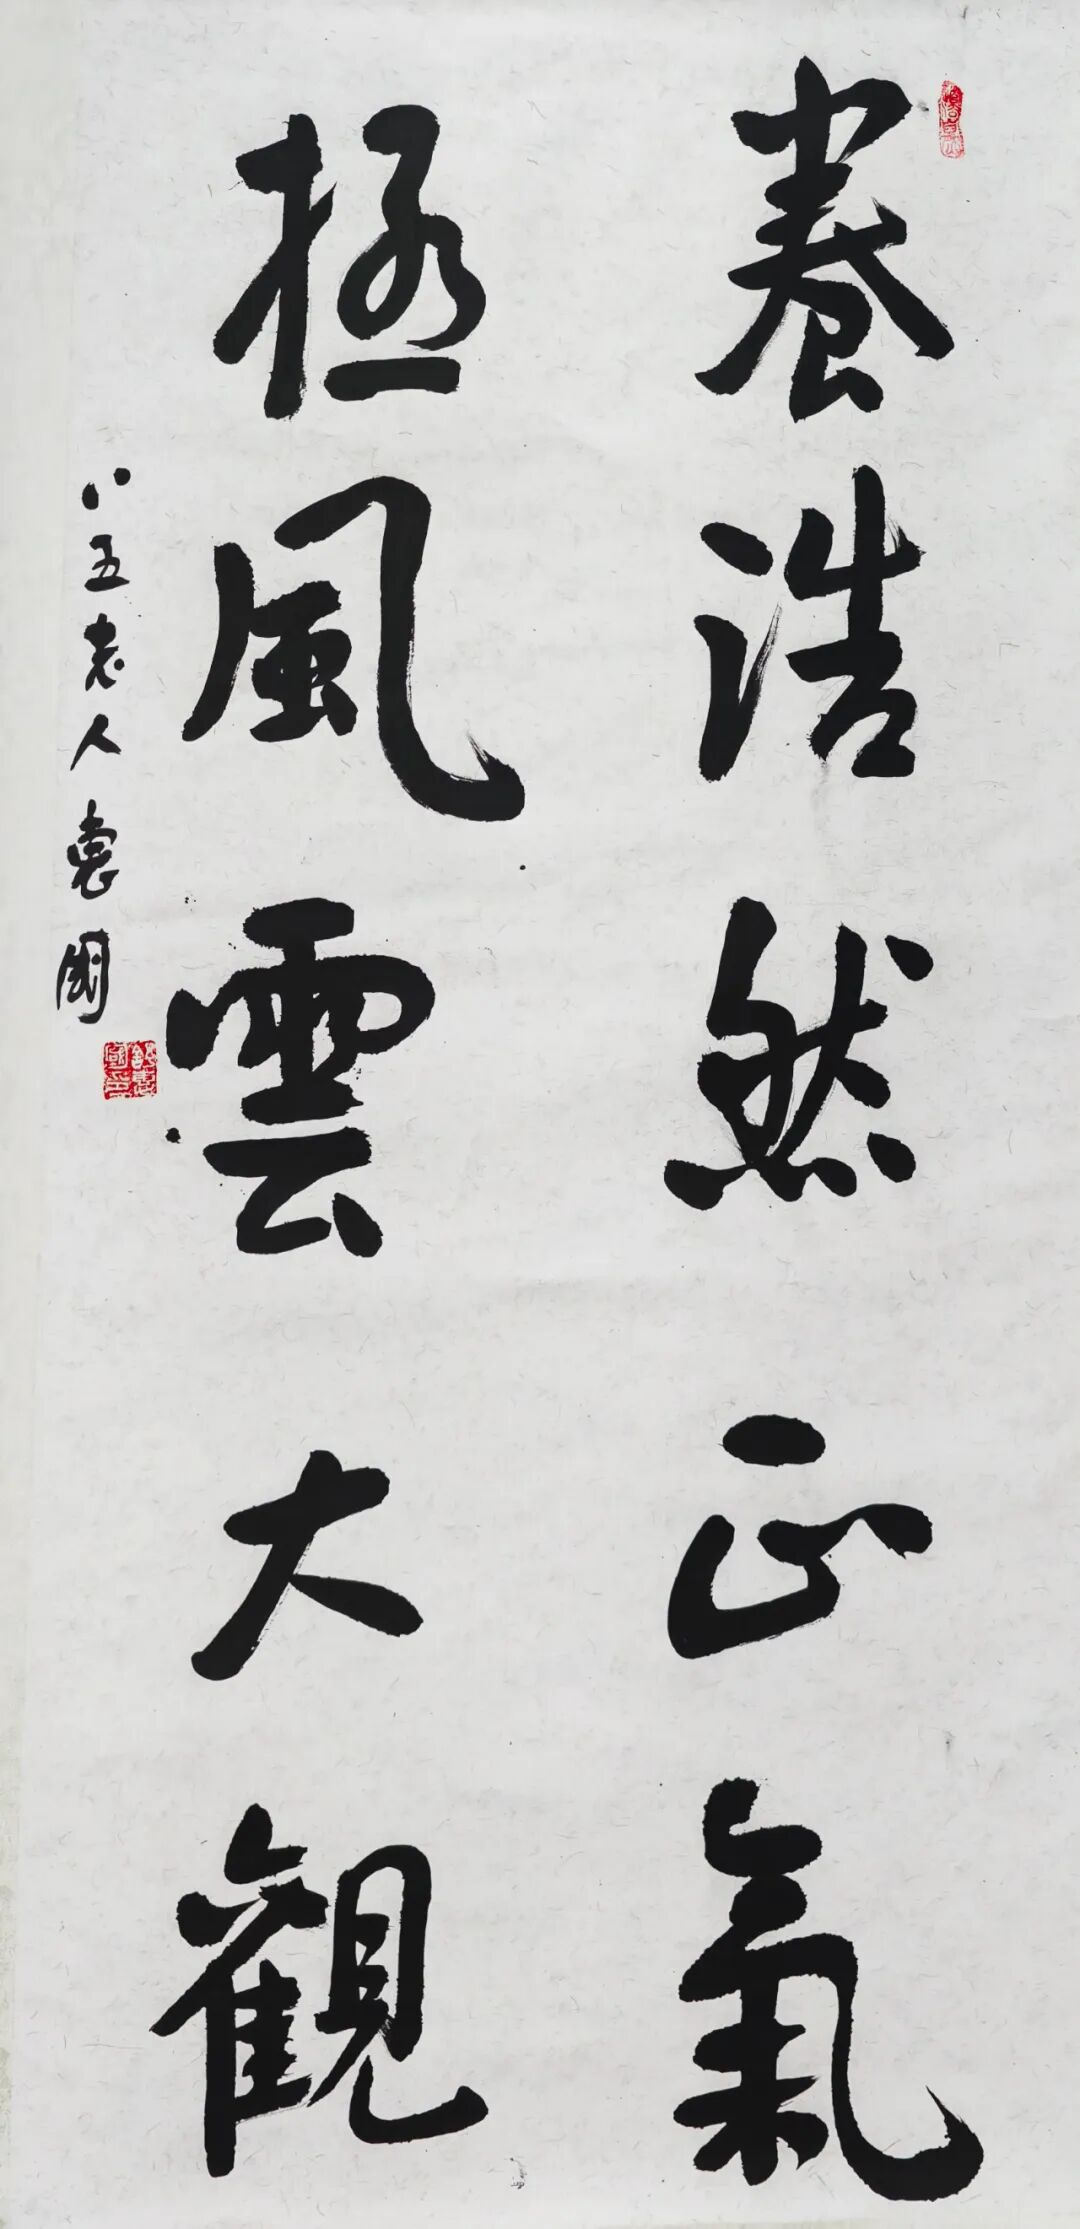 養浩然正氣
極風雲大觀
八五老人惠國